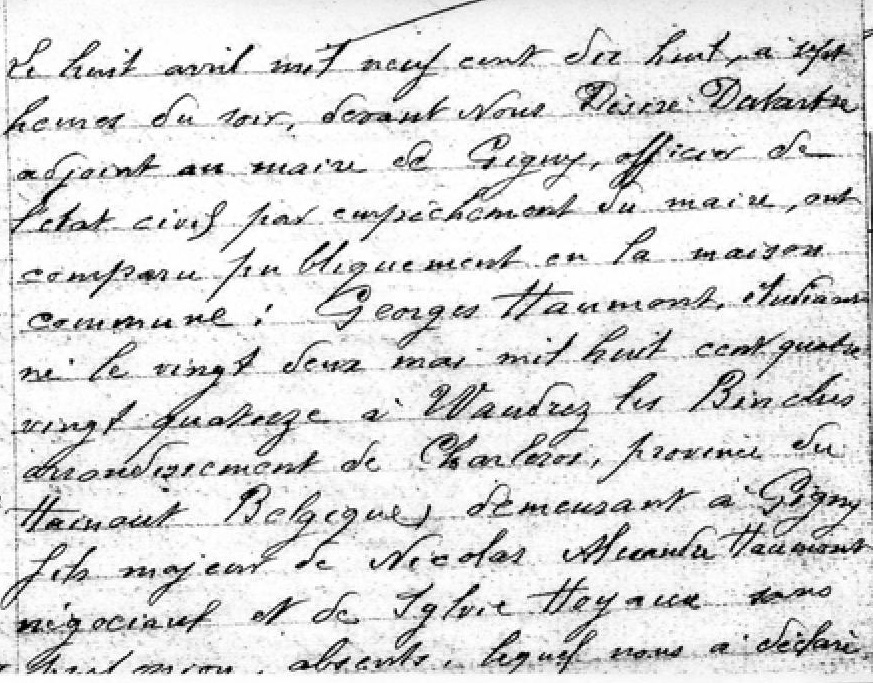 Le huit avril mil neuf cent dix huit, à sept
heures du soir, devant Nous Désiré Delartre
adjoint au maire de Gigny, officier de
l'état civil par empêchement du maire, ont
comparu publiquement en la maison
commune : Georges Haumont, étudiant
né le vingt deux mai mil huit cent quatre
vingt quatorze à Waudrez les Binches
arrondissement de Charleroi, province du
Hainaut Belgique, demeurant à Gigny
fils majeur de Nicolas Alexandre Haumont
négociant et de Sylvie Hoyaux sans
profession, absents, lequel nous a déclaré